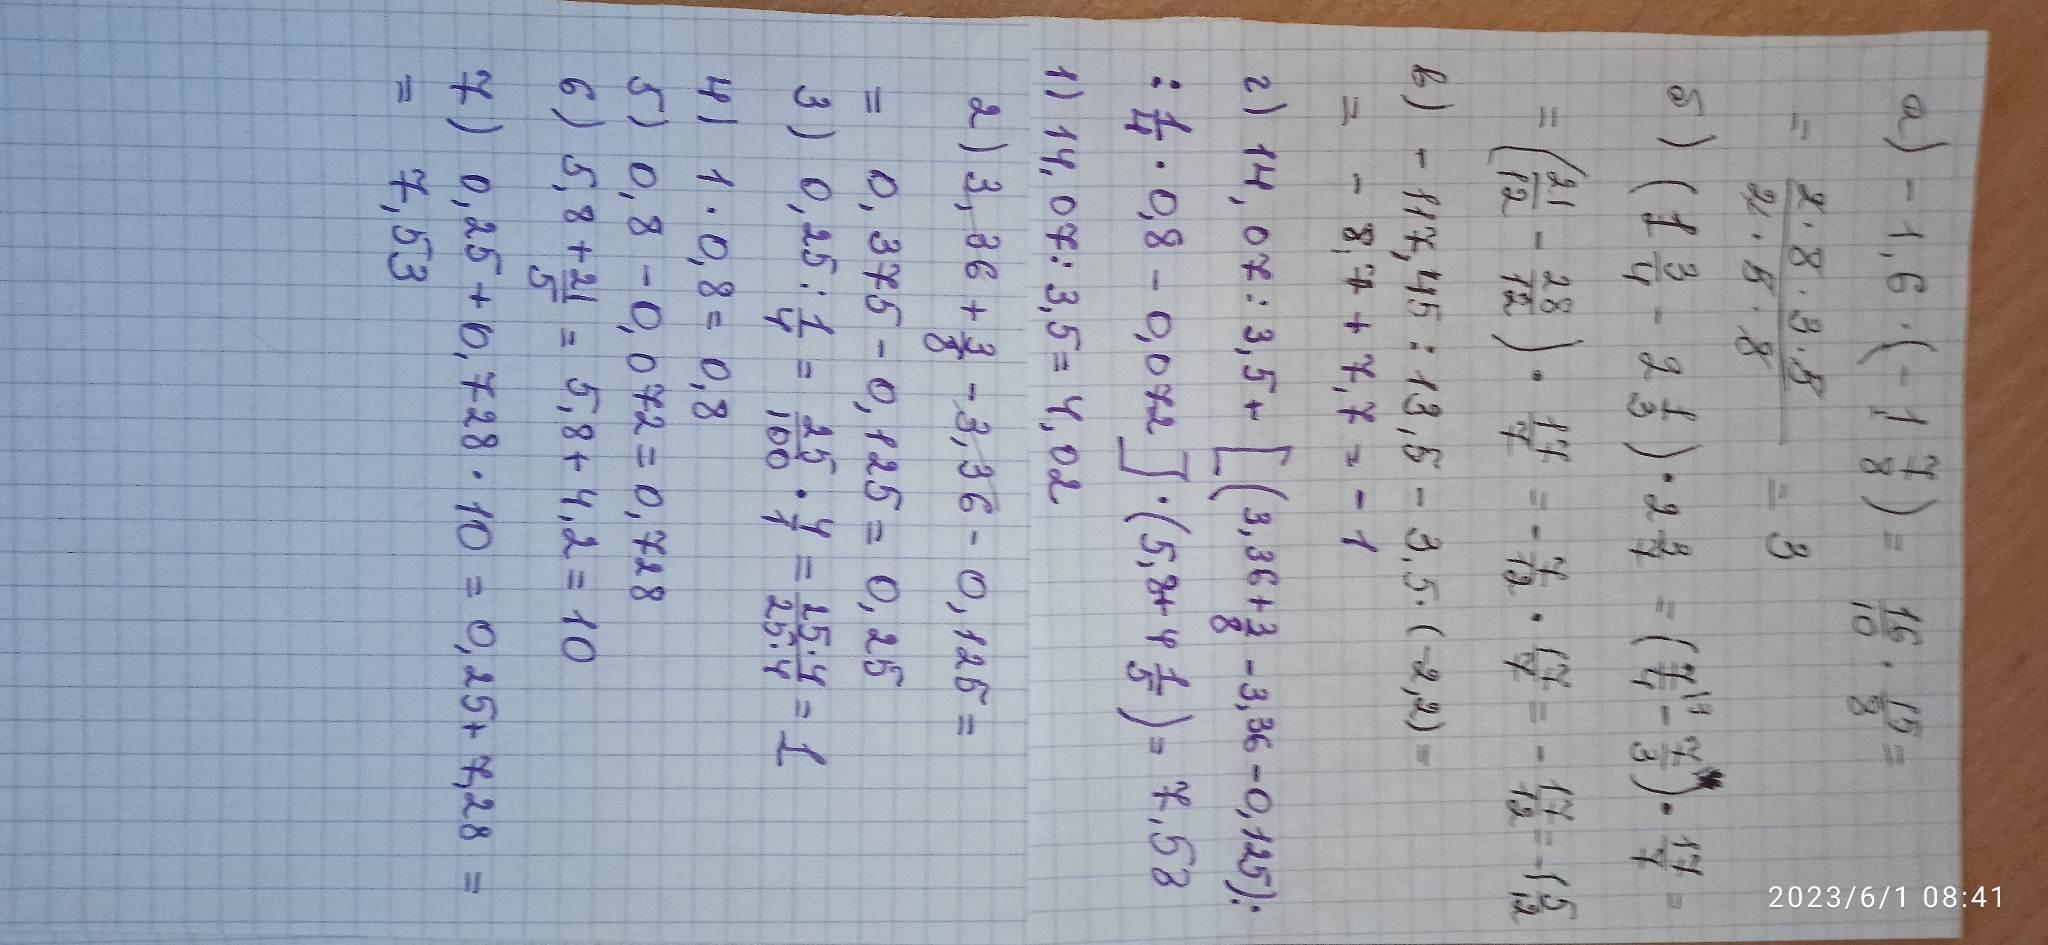 а) -1,6 · (-1 7/8) = 16/10 · 15/8 =
= 2·8·3·5/2·5·8 = 3
б) (1 3/4 - 2 1/3) · 2 3/7 = (7/4 - 7/3) · 17/7 =
= (21/12 - 28/12) · 17/7 = -7/12 · 17/7 = -17/12 = -1 5/12
в) -117,45 : 13,5 - 3,5 · (-2,2) =
= -8,7 + 7,7 = -1
г) 14,07 : 3,5 + [(3,36 + 3/8 - 3,36 - 0,125) :
: 1/4 · 0,8 - 0,072] · (5,8 + 4 1/5) = 7,53
1) 14,07 : 3,5 = 4,02
2) 3,36 + 3/8 - 3,36 - 0,125 =
= 0,375 - 0,125 = 0,25
3) 0,25 : 1/4 = 25/100 · 4/1 = 25·4/25·4 = 1
4) 1 · 0,8 = 0,8
5) 0,8 - 0,072 = 0,728
6) 5,8 + 21/5 = 5,8 + 4,2 = 10
7) 0,25 + 0,728 · 10 = 0,25 + 7,28 =
= 7,53
2023/6/1 08:41